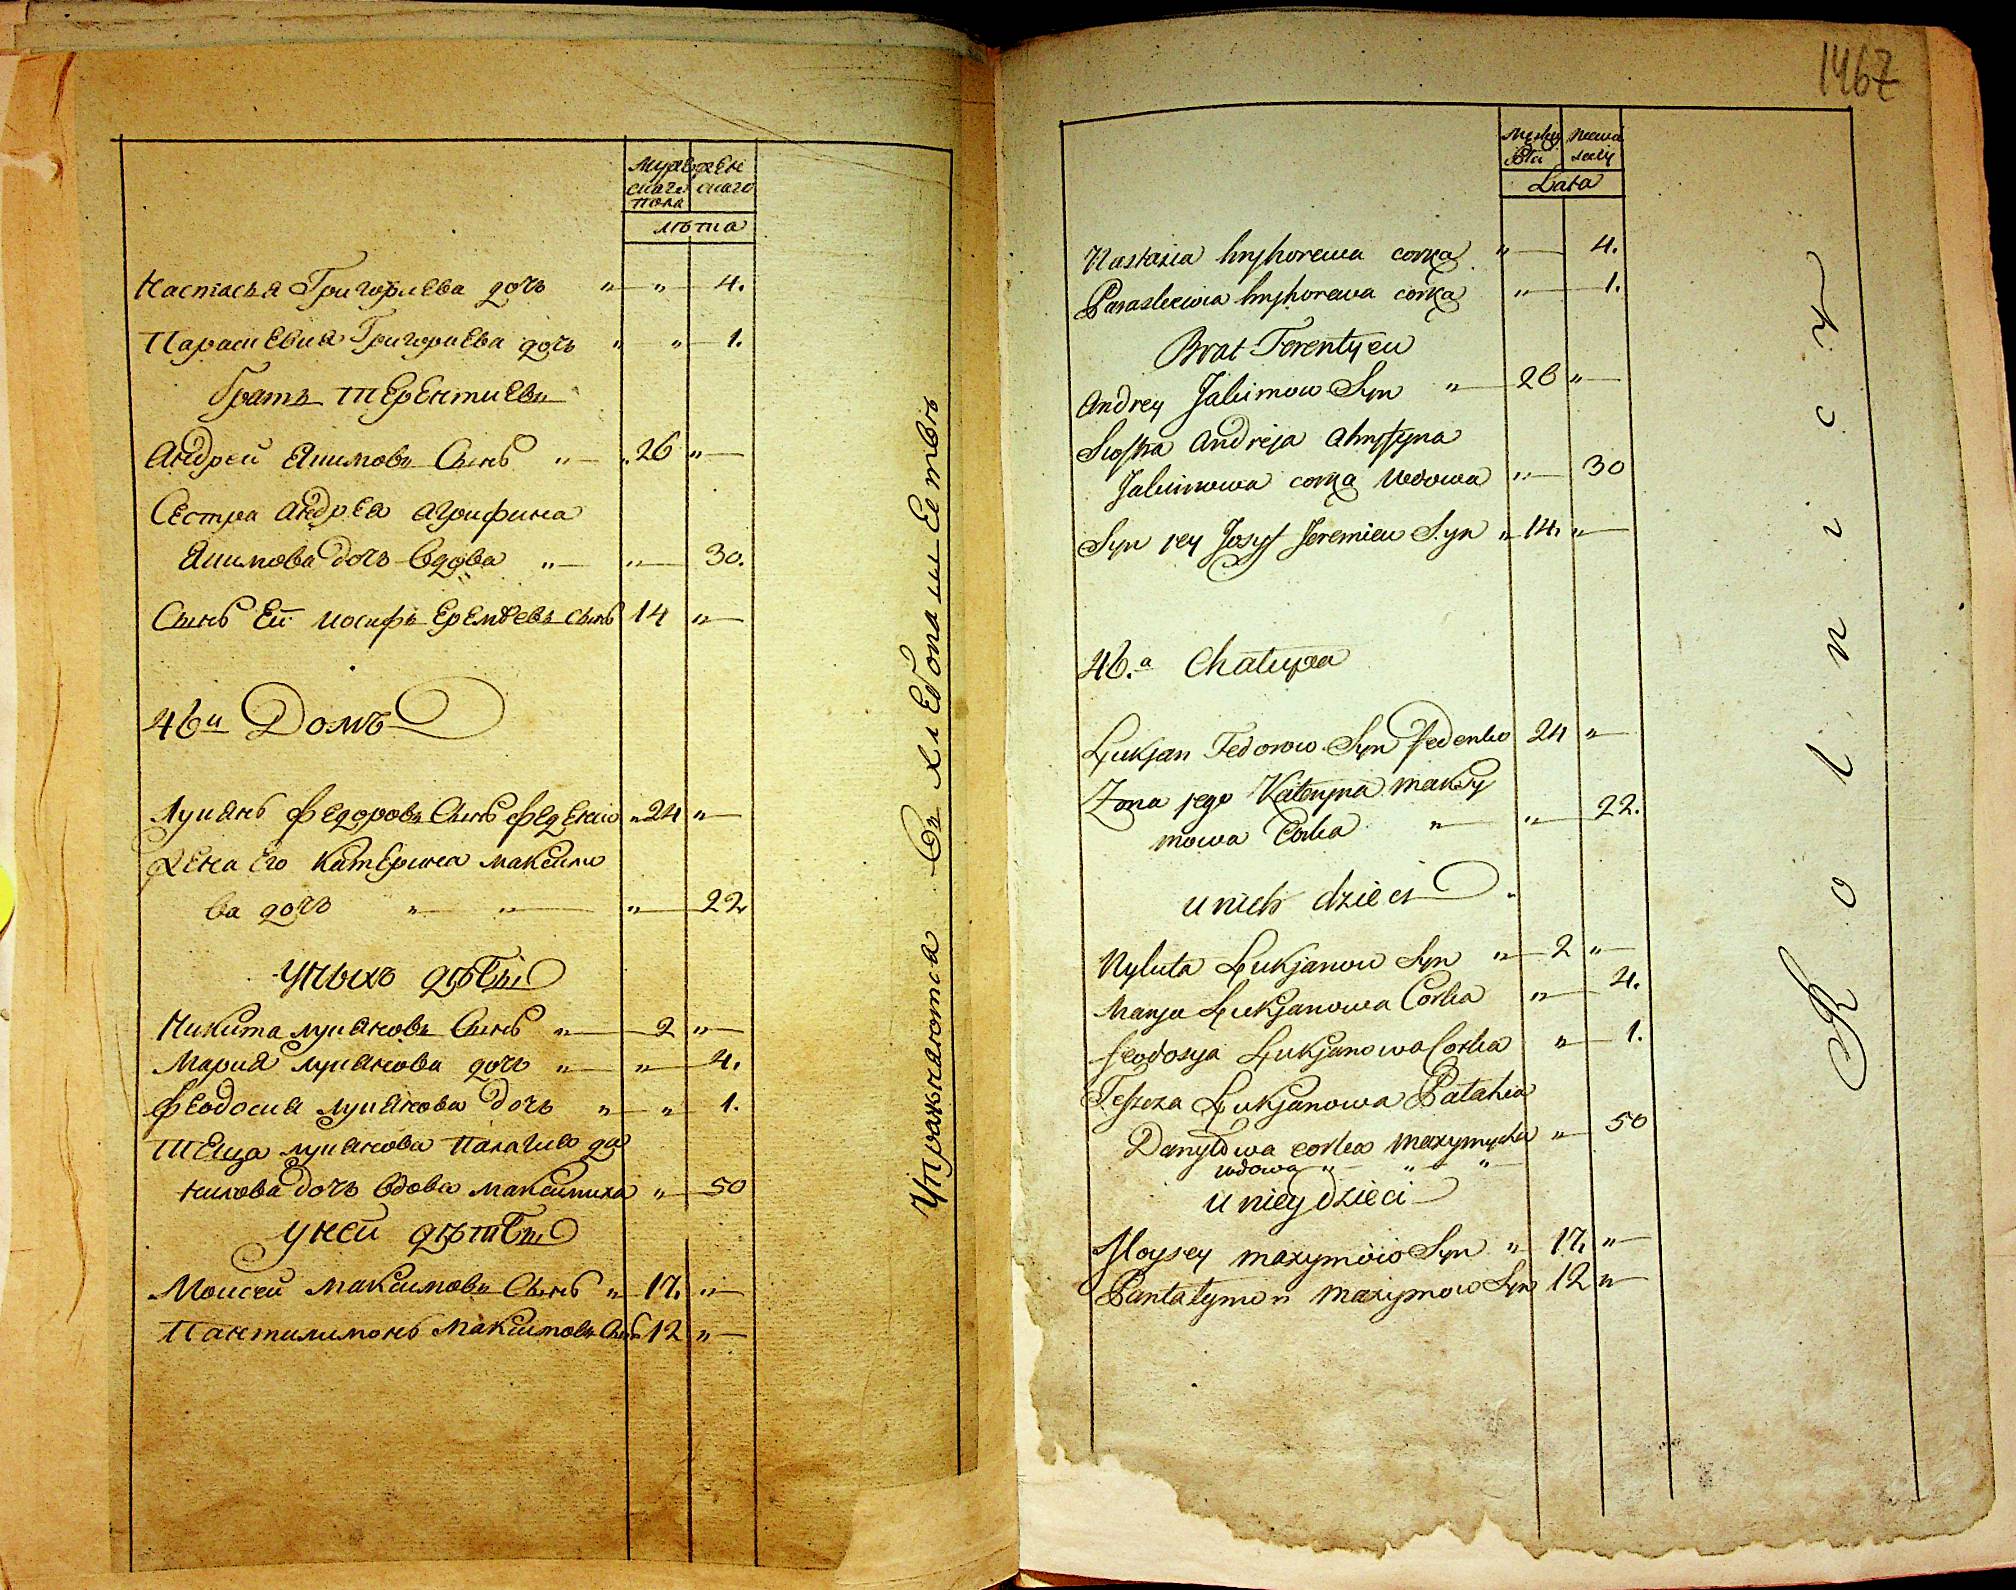 Мужескаго пола
женскаго
лѣта
Настасья Григориева дочь " " 4.
Параскевия Григориева дочь " " 1.
Братъ Терентиевъ
Андрей Якимовъ Сынъ " 26 "
Сестра Андрея Агрифина
Якимова дочь вдова " " 30.
Сынъ Ей Иосифъ Еремѣевъ сынъ 14 "
46й Домъ
Лукянъ Федоровъ Сынъ Феденко " 24 "
Жена Его Катерина Максимо
ва дочь " " " 22
У ныхъ дѣты
Никита Лукяновъ Сынъ " 2 "
Мария Лукянова дочь " " 4.
Феодосия Лукянова дочь " " 1.
Теща Лукянова Палагию да
нилова дочь вдова Максимиха " 50
У ней дѣты
Моисей Максимовъ Сынъ " 17. "
Пантилимонъ Максимовъ Сынъ 12 "
Упражняются въ хлебопашествѣ
1467
Męzkiey Płci
Lata
Nastazia hryhorewa corka " 4.
Paraskewia hryhorewa corka " 1.
Brat Terentyew
Andrey Jakimow Syn " 26 "
Siostra Andreja Ahryfyna
Jakimowa corka Wdowa " 30
Syn jey Josyf Jeremiew Syn " 14. "
46.a Chatupa
Łukjan Fedorow Syn Fedenko 24 "
Zona jego Kateryna Maksy
mowa Corka " " 22.
u nich dzieci
Nykita Łukjanow Syn " 2 "
Marya Łukjanowa Corka " 4.
Feodosya Łukjanowa Corka " 1.
Teszcza Łukjanowa Pałahia
Danyłowa corka Maxymycha " 50
wdowa " " "
u niey dzieci
Moysey Maxymow Syn " 17. "
Pantałymon Maxymow Syn 12 "
Rolnicy